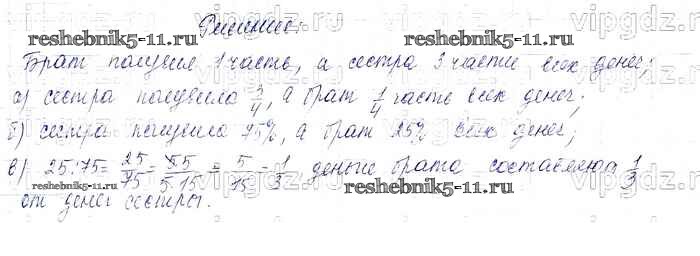 Решение:
Брат получил 1 часть, а сестра 3 части всех денег;
а) сестра получила 3/4, а брат 1/4 часть всех денег;
б) сестра получила 75%, а брат 25% всех денег;
в) 25:75 = 25/75 = 5·5/5·15 = 5/15 = 1/3 деньги брата составляют 1/3
от денег сестры.
reshebnik5-11.ru
reshebnik5-11.ru
reshebnik5-11.ru
reshebnik5-11.ru
vipgdz.ru
vipgdz.ru
vipgdz.ru
vipgdz.ru